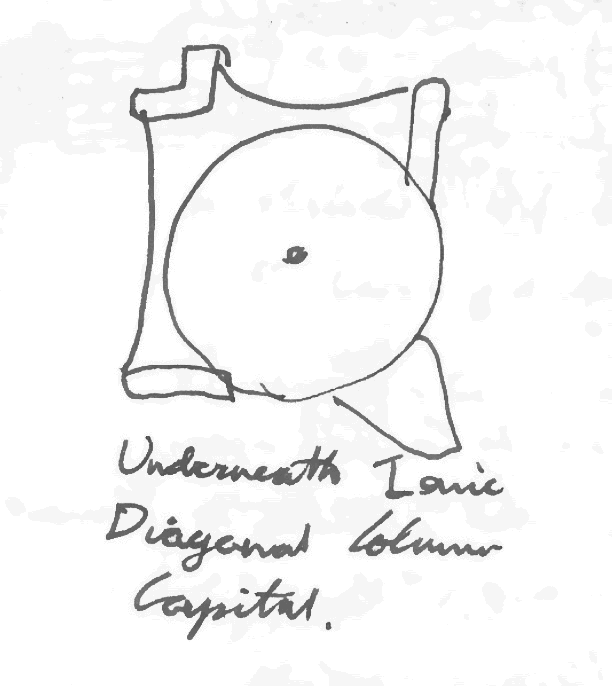 Underneath Ionic
Diagonal Column
Capital.